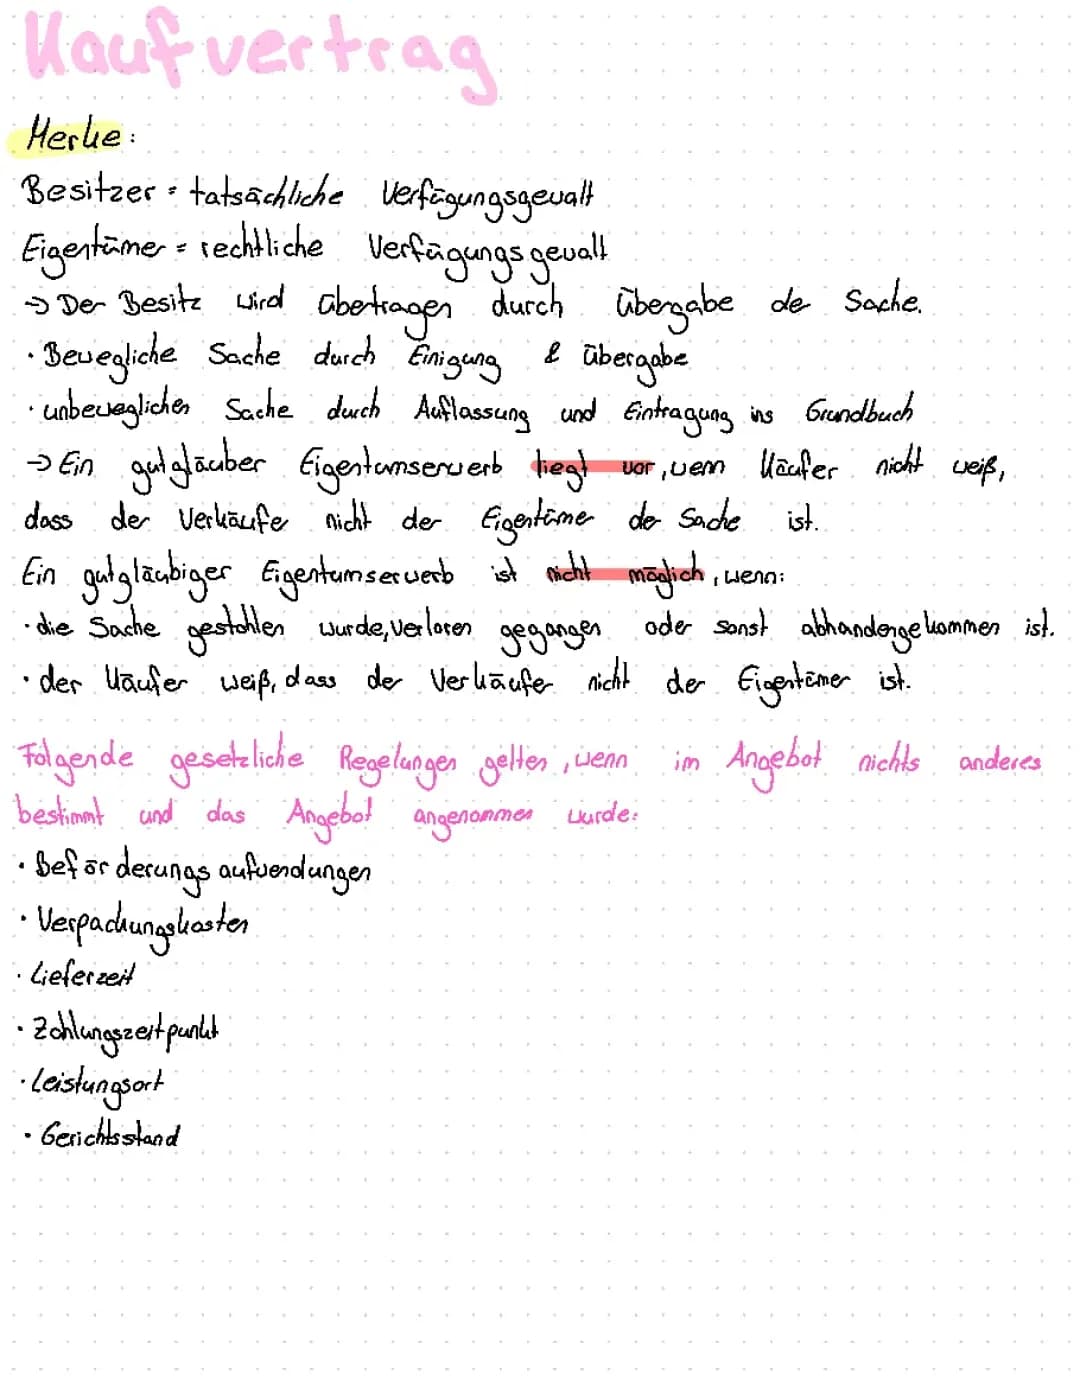 Kaufvertrag
Merke:
Besitzer = tatsächliche Verfügungsgewalt
Eigentümer = rechtliche Verfügungsgewalt
→ Der Besitz wird übertragen durch Übergabe der Sache.
· Bewegliche Sache durch Einigung & übergabe
· unbeweglichen Sache durch Auflassung und Eintragung ins Grundbuch
→ Ein gutgläuber Eigentumserwerb liegt vor, wenn Käufer nicht weiß,
dass der Verkäufer nicht der Eigentümer der Sache ist.
Ein gutgläubiger Eigentumserwerb ist nicht möglich, wenn:
· die Sache gestohlen wurde, verloren gegangen oder sonst abhandengekommen ist.
· der Käufer weiß, dass der Verkäufer nicht der Eigentümer ist.
Folgende gesetzliche Regelungen gelten, wenn im Angebot nichts anderes
bestimmt und das Angebot angenommen wurde:
· Beförderungsaufwendungen
· Verpackungskosten
· Lieferzeit
· Zahlungszeitpunkt
· Leistungsort
· Gerichtsstand